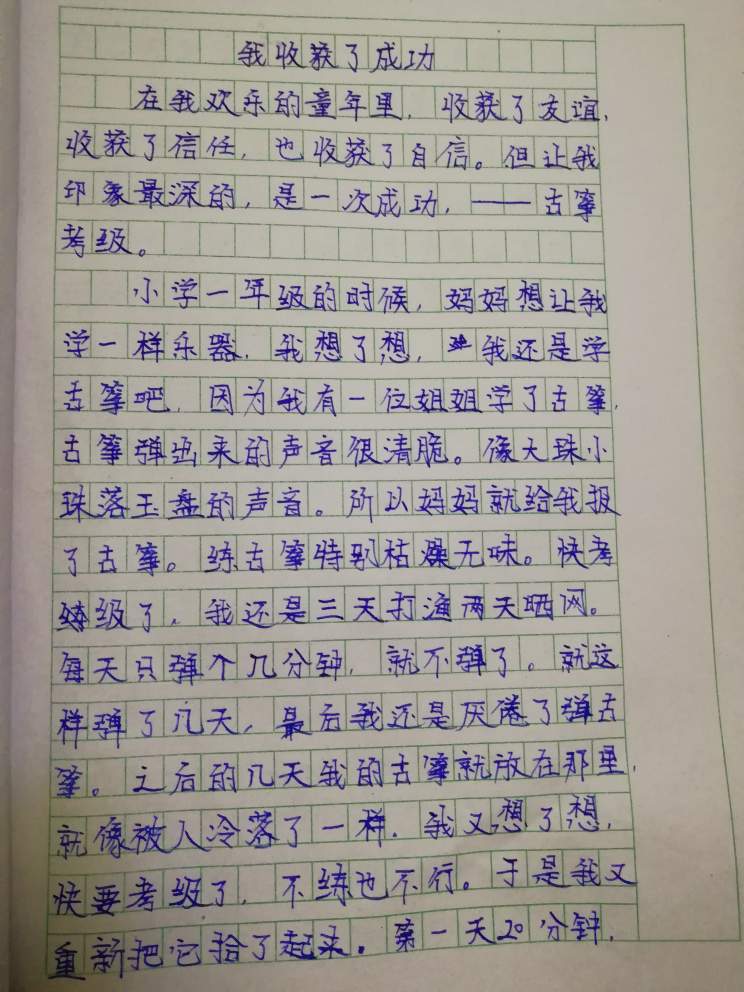 我收获了成功
在我欢乐的童年里，收获了友谊，
收获了信任，也收获了自信。但让我
印象最深的，是一次成功，——古筝
考级。
小学一年级的时候，妈妈想让我
学一样乐器，我想了想，我还是学
古筝吧，因为我有一位姐姐学了古筝，
古筝弹出来的声音很清脆。像大珠小
珠落玉盘的声音。所以妈妈就给我报
了古筝。练古筝特别枯燥无味。快考
级了，我还是三天打渔两天晒网。
每天只弹个几分钟，就不弹了。就这
样弹了几天，最后我还是厌倦了弹古
筝。之后的几天我的古筝就放在那里，
就像被人冷落了一样，我又想了想，
快要考级了，不练也不行。于是我又
重新把它拾了起来。第一天20分钟，